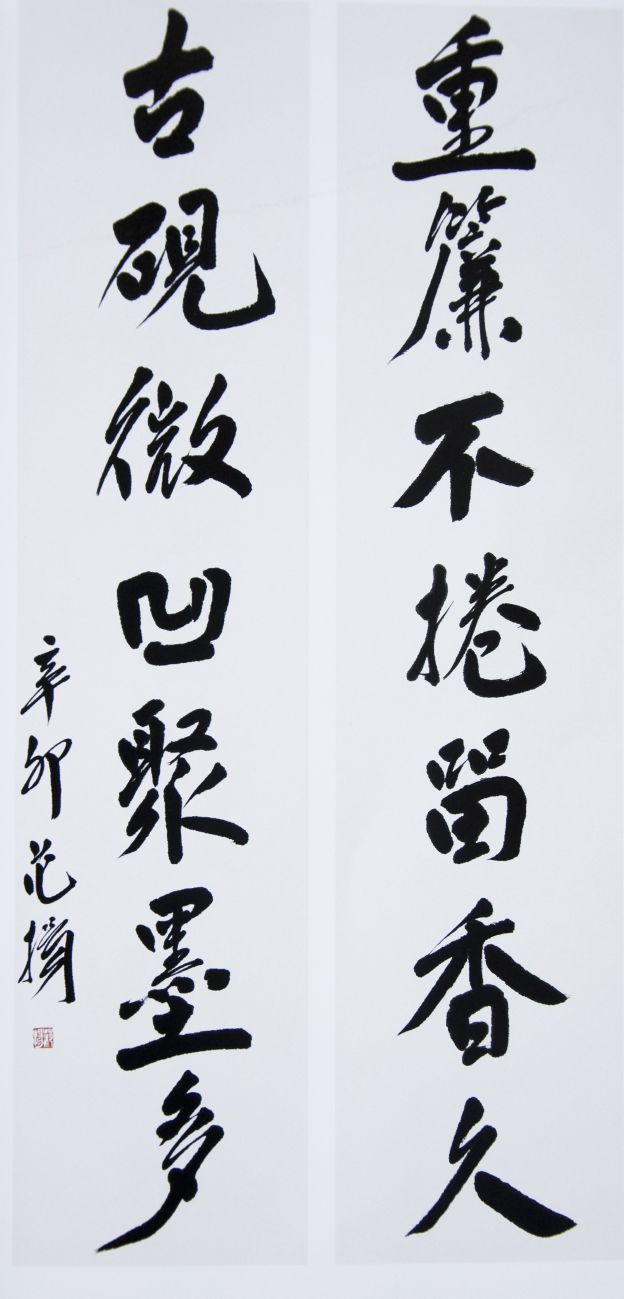 重簾不捲留香久
古硯微凹聚墨多
辛卯范